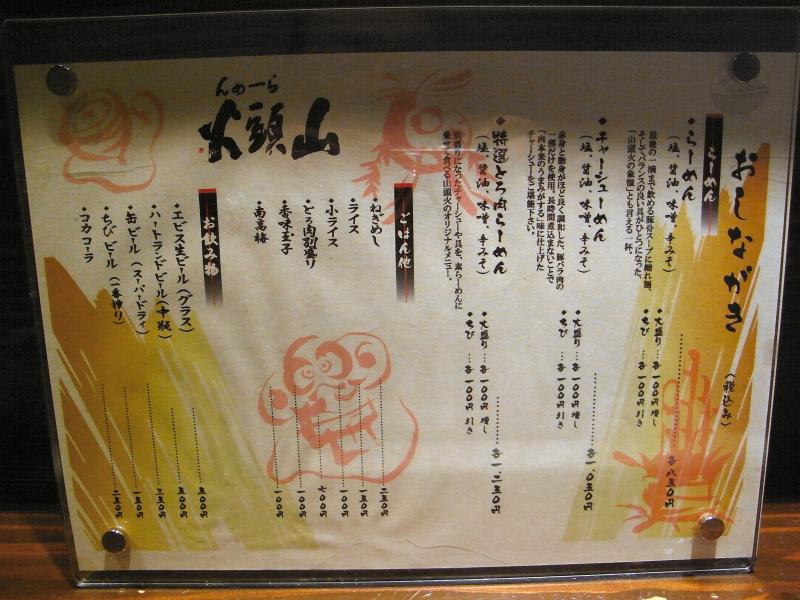 おしながき
(税込み)
らーめん
・らーめん
(塩、醤油、味噌、辛みそ)
各八五〇円
最後の一滴まで飲める豚骨スープに縮れ麺、
そしてバランスの良い具がひとつになった、
「山頭火の象徴」とも言える一杯。
・大盛り…各一〇〇円増し
・ちび…各一〇〇円引き
・チャーシューめん
(塩、醤油、味噌、辛みそ)
各一、〇五〇円
赤身と脂身がほど良く調和した、豚バラ肉の
一部だけを使用。長時間煮込まないことで
「肉本来のうまみがする」味に仕上げた
チャーシューをご堪能下さい。
・大盛り…各一〇〇円増し
・ちび…各一〇〇円引き
・特選とろ肉らーめん
(塩、醤油、味噌、辛みそ)
各一、二五〇円
別盛りになったチャーシューや具を、素らーめんに
乗せて食べる山頭火のオリジナルメニュー。
・大盛り…各一〇〇円増し
・ちび…各一〇〇円引き
ごはん他
・ねぎめし 二五〇円
・ライス 一五〇円
・小ライス 一〇〇円
・とろ肉別盛り 七〇〇円
・香味玉子 一〇〇円
・南高梅 一〇〇円
らーめん
山頭火
お飲み物
・エビス生ビール(グラス) 五〇〇円
・ハートランドビール(中瓶) 五〇〇円
・缶ビール(スーパードライ)
・ちびビール(一番搾り)
・コカコーラ 二五〇円